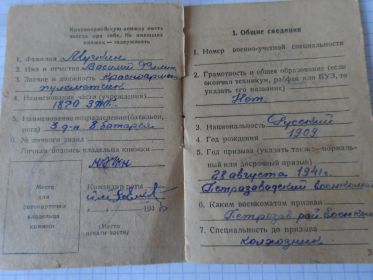 Красноармейскую книжку иметь
всегда при себе. Не имеющих
книжек — задерживать
1. Фамилия
2. Имя и отчество Василий
3. Звание и должность красноармеец
пулеметчик
4. Наименование части (учреждения)
1870
5. Наименование подразделения (батальон,
рота) 3 д-н 8 батарея
6. № личного знака
Личная подпись владельца книжки
Место
для
фотокарточки
владельца
книжки
Командир
194
Место
печати части
1. Общие сведения
1. Номер военно-учетной специальности
2. Грамотность и общее образование (если
окончил техникум, рабфак или ВУЗ, то
указать его название)
Нет
3. Национальность Русский
4. Год рождения 1909
5. Год призыва (указать также нормаль-
ный или досрочный призыв)
28 августа 1941г.
Петрозаводский военкомат
6. Каким военкоматом призван
Петрозав. рай.военком
7. Специальность до призыва
колхозник